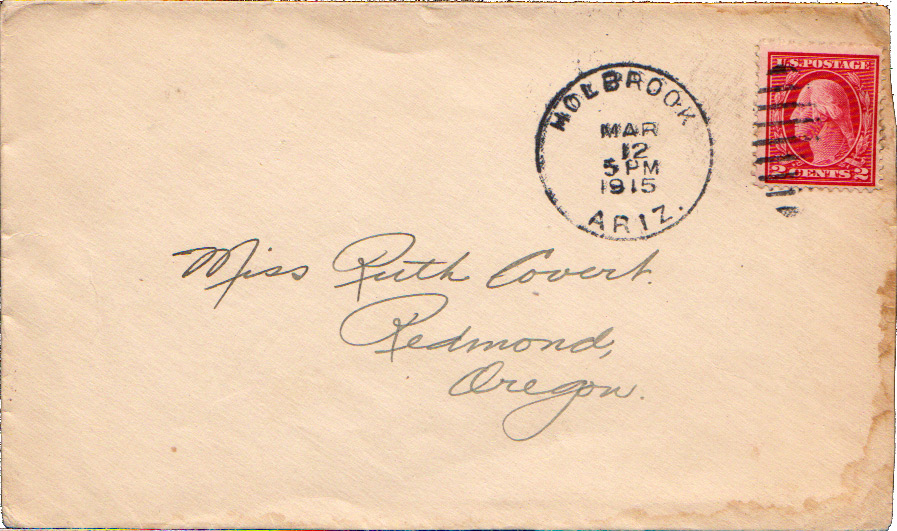 HOLBROOK
MAR
12
5 PM
1915
ARIZ.
U.S. POSTAGE
2 CENTS 2
Miss Ruth Covert.
Redmond,
Oregon.